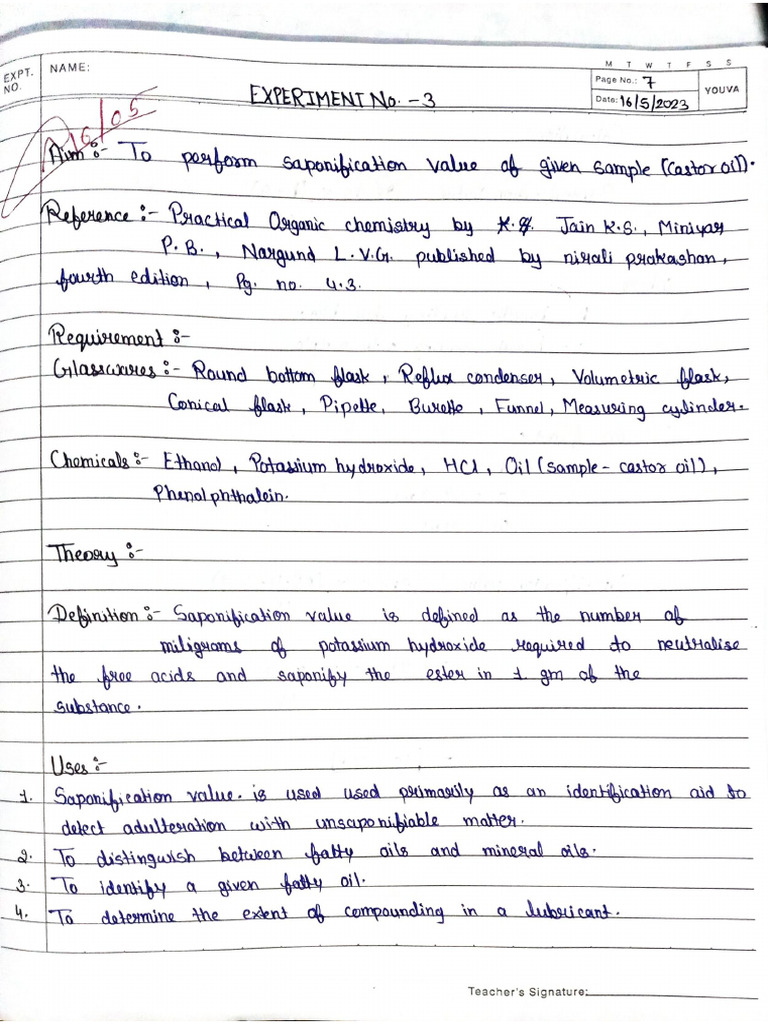 M T W T F S S
EXPT. NO.
NAME:
Page No.: 7
YOUVA
Date: 16/5/2023
EXPERIMENT No. - 3
16/05
Aim :- To perform saponification value of given sample (castor oil).
Reference :- Practical Organic chemistry by Jain K.S., Miniyar
P. B., Nargund L.V.G. published by nirali prakashan,
fourth edition, Pg. no. 4.3.
Requirement :-
Glasswares :- Round bottom flask, Reflux condenser, Volumetric flask,
Conical flask, Pipette, Burette, Funnel, Measuring cylinder.
Chemicals :- Ethanol, Potassium hydroxide, HCl, Oil (sample - castor oil),
Phenolphthalein.
Theory :-
Definition :- Saponification value is defined as the number of
miligrams of potassium hydroxide required to neutralise
the free acids and saponify the ester in 1 gm of the
substance.
Uses :-
1. Saponification value. is used used primarily as an identification aid to
detect adulteration with unsaponifiable matter.
2. To distinguish between fatty oils and mineral oils.
3. To identify a given fatty oil.
4. To determine the extent of compounding in a lubricant.
Teacher's Signature: